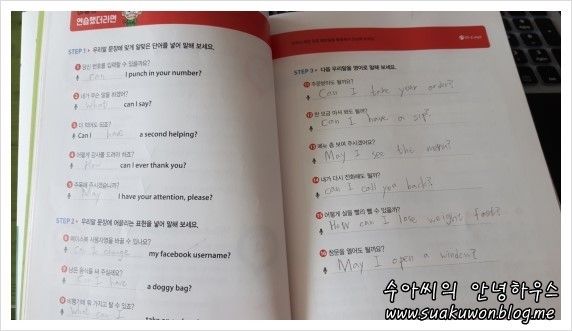 연습했더라면
STEP 1 우리말 문장에 맞게 알맞은 단어를 넣어 말해 보세요.
1 당신 번호를 입력할 수 있을까요?
can I punch in your number?
2 내가 무슨 말을 하겠어?
What can I say?
3 더 먹어도 되죠?
Can I have a second helping?
4 어떻게 감사를 드려야 하죠?
How can I ever thank you?
5 주목해 주시겠습니까?
May I have your attention, please?
STEP 2 우리말 문장에 어울리는 표현을 넣어 말해 보세요.
6 페이스북 사용자명을 바꿀 수 있나요?
Can I change my facebook username?
7 남은 음식을 싸 주실래요?
Can I have a doggy bag?
8 비행기에 뭐 가지고 탈 수 있죠?
What can I
STEP 3 다음 우리말을 영어로 말해 보세요.
11 주문받아도 될까요?
Can I take your order?
12 한 모금 마셔 봐도 될까?
Can I have a sip?
13 메뉴 좀 보여 주시겠어요?
May I see the menu?
14 내가 다시 전화해도 될까?
can I call you back?
15 어떻게 살을 빨리 뺄 수 있을까?
How can I lose weight fast?
16 창문을 열어도 될까요?
May I open a window?
수아씨의 안녕하우스
www.suakuwon.blog.me